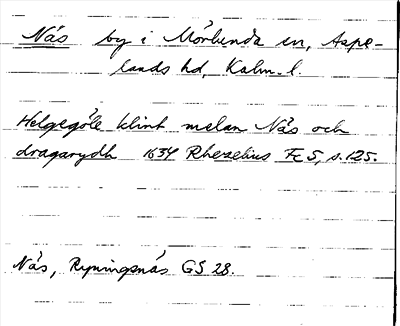 Näs by i Mörlunda sn, Aspe-
lands hd, Kalm. l.
Helgegöle klint melan Näs och
dragarydh 1634 Rhezelius Fc 5, s. 125.
Näs, Ryningsnäs GS 28.